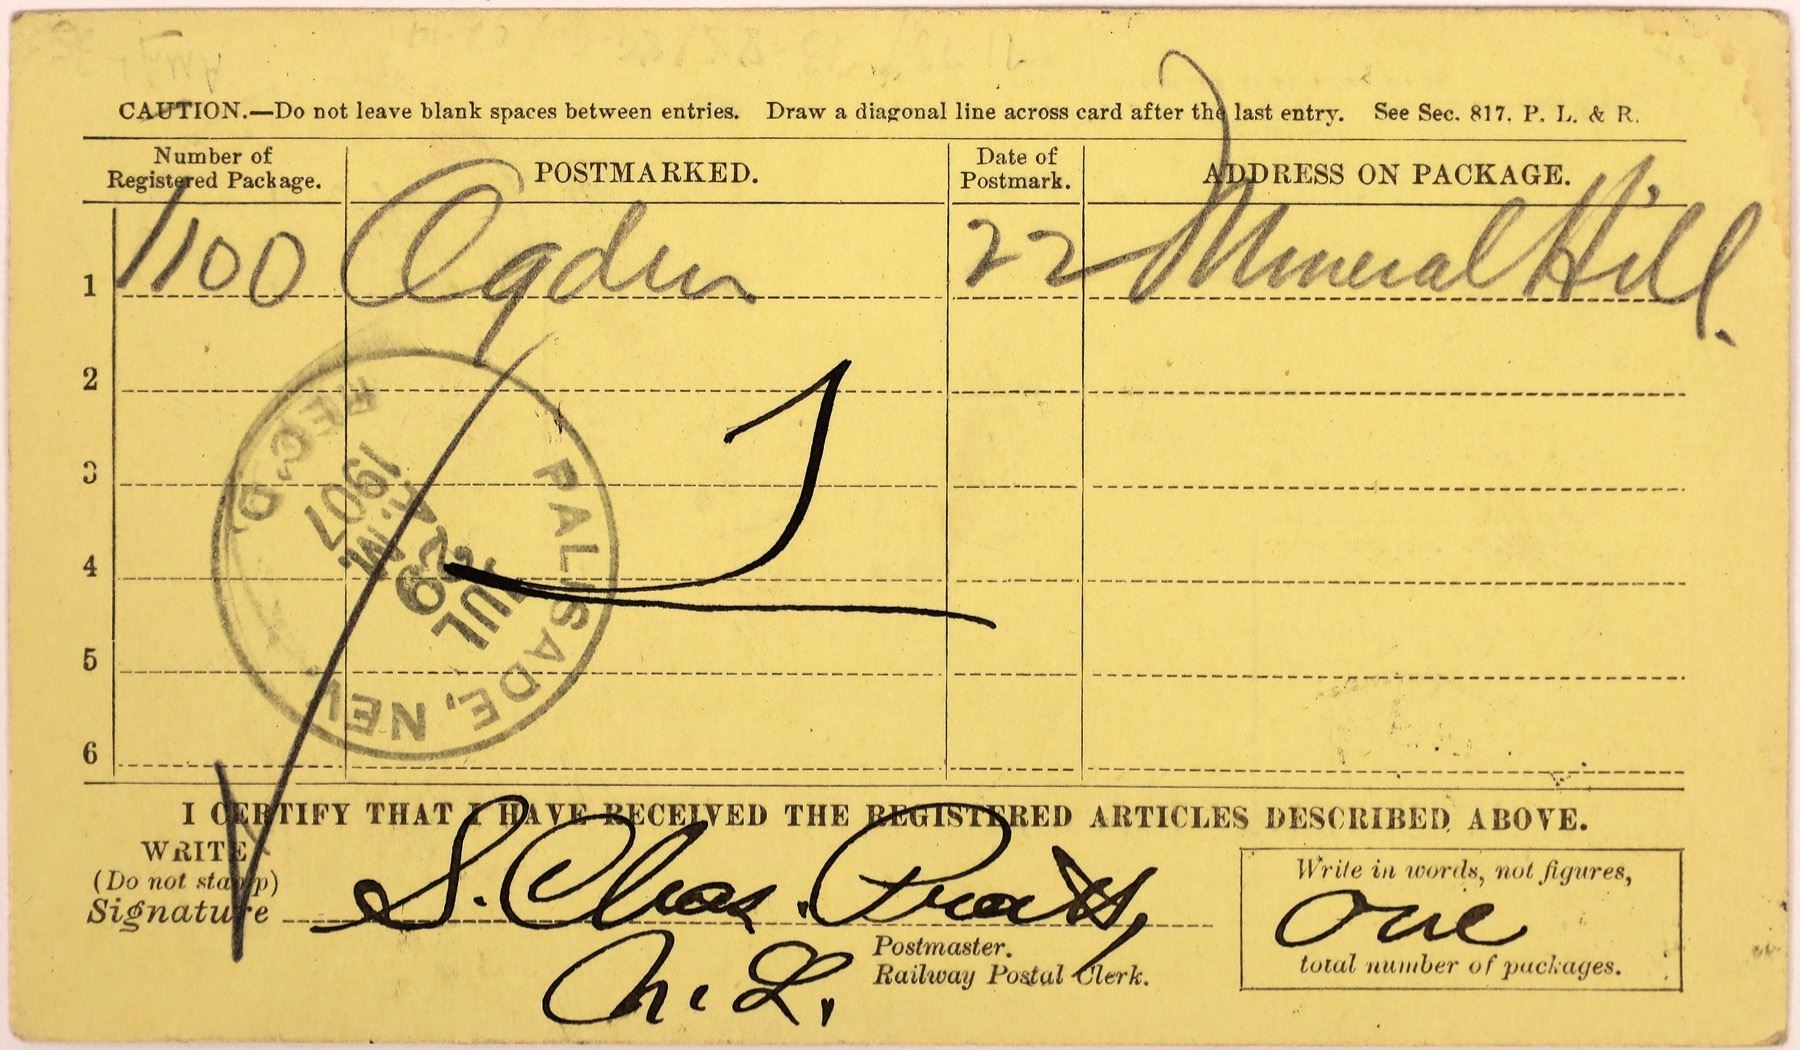 CAUTION.—Do not leave blank spaces between entries. Draw a diagonal line across card after the last entry. See Sec. 817. P. L. & R.
Number of Registered Package. POSTMARKED. Date of Postmark. ADDRESS ON PACKAGE.
1 1100 Ogden 22 Mineral Hill.
2
3
4
5
6
PALISADE, NEV.
JUL
29
A.M.
1907
REC'D.
I CERTIFY THAT I HAVE RECEIVED THE REGISTERED ARTICLES DESCRIBED ABOVE.
WRITE
(Do not stamp)
Signature S. Chas. Pratt,
Postmaster.
Railway Postal Clerk.
Write in words, not figures,
One
total number of packages.